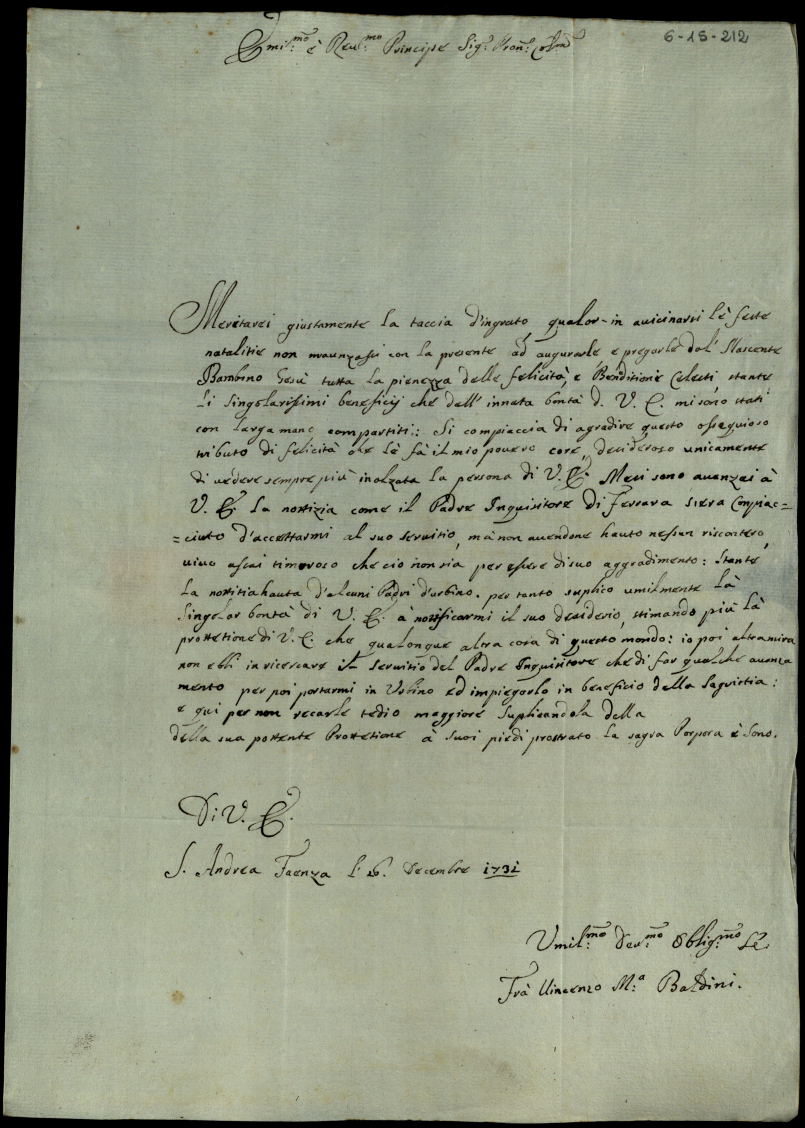 6-15-212
Emi:mo è Reu:mo Principe Sig:
Meritarei giustamente la taccia d'ingrato, qualor in auicinarsi lè feste
natalitie non mauanzassi con la presente ad augurarle, e pregarle dal Nascente
Bambino Gesù tutta la pienezza delle felicità, e Benditioni Celesti, stante
li Singolarissimi beneficij che dell'innata bontà d. V. E. mi sono stati
con larga mano compartiti: Si compiaccia di agradire questo osseguioso
tributo di felicità che lè fà il mio pouero core, desideroso unicamente
di uedere sempre più inalzata la persona di V. E. Mesi sono auanzai à
V. E. la nottizia come il Padre Inquisitore di Ferrara siera Compiac=
=ciuto d'accettarmi al suo seruitio, mà non auendone hauto nessun riscontero,
uiuo assai timoroso che cio non sia per essere di suo aggradimento: Stante
la nottitia hauta d'alcuni Padri d'urbino. per tanto suplico umilmente là
Singolar bontà di V. E. à nottificarmi il suo desiderio, stimando più là
prottetione di V. E. che qualonque altra cosa di questo mondo: io poi altra mira
non ebbi in ricercare il seruitio del Padre Inquisitore che di far qualche auanza
mento per poi portarmi in Urbino ed impiegarlo in beneficio della Sagristia:
e qui per non recarle tedio maggiore Suplicandola della
della sua pottente Prottetione à Suoi piedi prostrato la sagra Porpora è Sono.
Di V. E.
S. Andrea Faenza l' 16. Decembre 1731
Umil:mo Deu:mo Oblig:mo
Frà Uincenzo M:a Baldini.